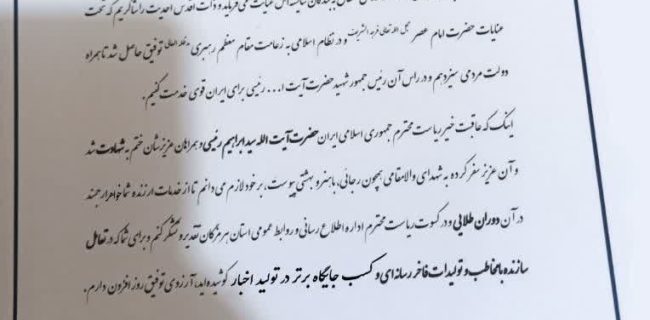 شایسته‌اش عنایت می‌فرماید و ذات اقدس احدیت را شاکریم که تحت
عنایات حضرت امام عصر و در نظام اسلامی به زعامت مقام معظم رهبری توفیق حاصل شد تا همراه
دولت مردمی سیزدهم و در راس آن رئیس جمهور شهید حضرت آیت ا... رئیسی برای ایران قوی خدمت کنیم.
اینک که عاقبت خیر ریاست محترم جمهوری اسلامی ایران حضرت آیت الله سید ابراهیم رئیسی و همراهان عزیزشان ختم به شهادت شد
و آن عزیز سفر کرده به شهدای والامقامی همچون رجائی، باهنر و بهشتی پیوست، بر خود لازم می دانم تا از خدمات ارزنده شما خواهر ارجمند
در آن دوران طلایی و در کسوت ریاست محترم اداره اطلاع رسانی و روابط عمومی استان هرمزگان تقدیر و تشکر کنم و برای شما که در تعامل
سازنده با مخاطب و تولیدات فاخر رسانه ای و کسب جایگاه برتر در تولید اخبار کوشیده‌اید، آرزوی توفیق روز افزون دارم.